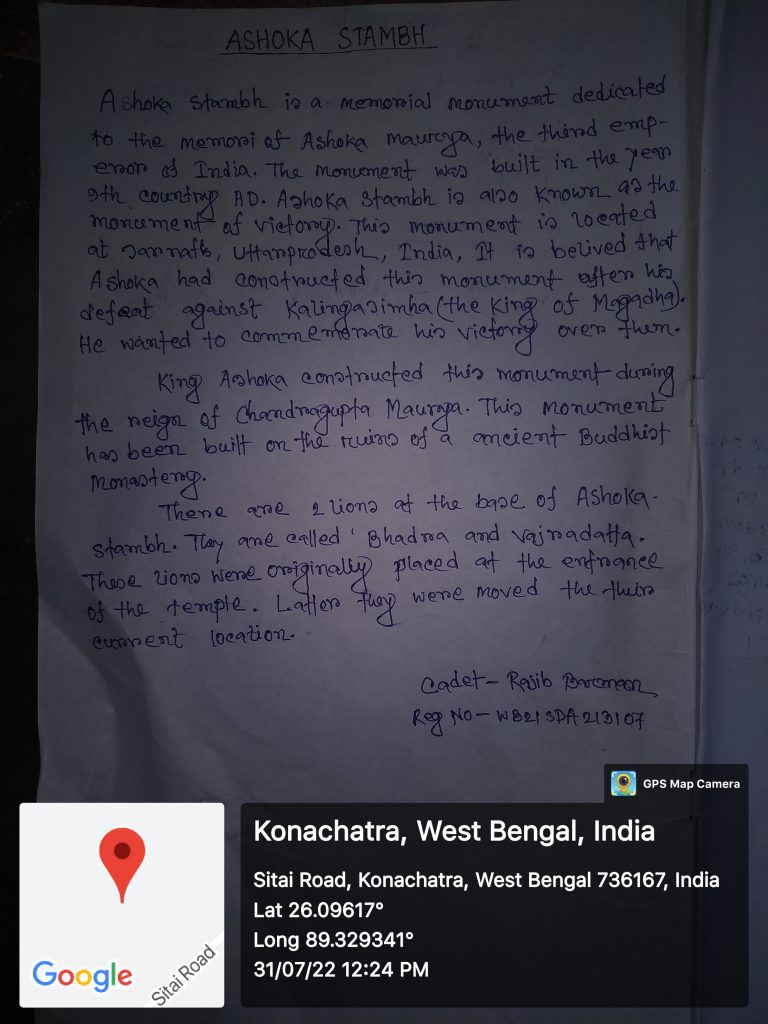 ASHOKA STAMBH
Ashoka stambh is a memorial monument dedicated
to the memori of Ashoka maurya, the third emp-
eror of India. The monument was built in the year
9th country AD. Ashoka stambh is also known as the
monument of victory. This monument is located
at sarnath, Uttarprodesh, India, It is belived that
Ashoka had constructed this monument after his
defeat against Kalingasimha (the King of Magadha).
He wanted to commemorate his victory over them.
King Ashoka constructed this monument during
the reign of Chandragupta Maurya. This monument
has been built on the ruins of a ancient Buddhist
monastery.
There are 2 lions at the base of Ashoka-
stambh. They are called 'Bhadra and Vajradatta.
These lions were originally placed at the entrance
of the temple. Latter they were moved the their
current location.
Cadet- Rajib Barman
Reg No- WB21SDA213107
GPS Map Camera
Konachatra, West Bengal, India
Sitai Road, Konachatra, West Bengal 736167, India
Lat 26.09617°
Long 89.329341°
31/07/22 12:24 PM
Google
Sitai Road